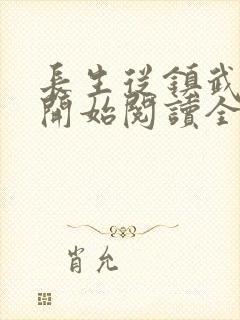 長生從鎮武
開始閱讀全
肖允